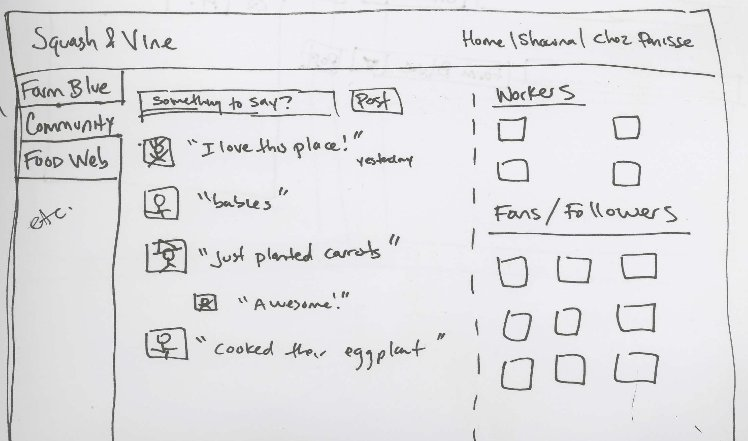 Squash & Vine
Home | Shawna | Chez Panisse
Farm Blue
Community
Food Web
etc.
something to say?
Post
"I love this place!"
yesterday
"babies"
"Just planted carrots"
"Awesome!"
"cooked their eggplant"
Workers
Fans/Followers